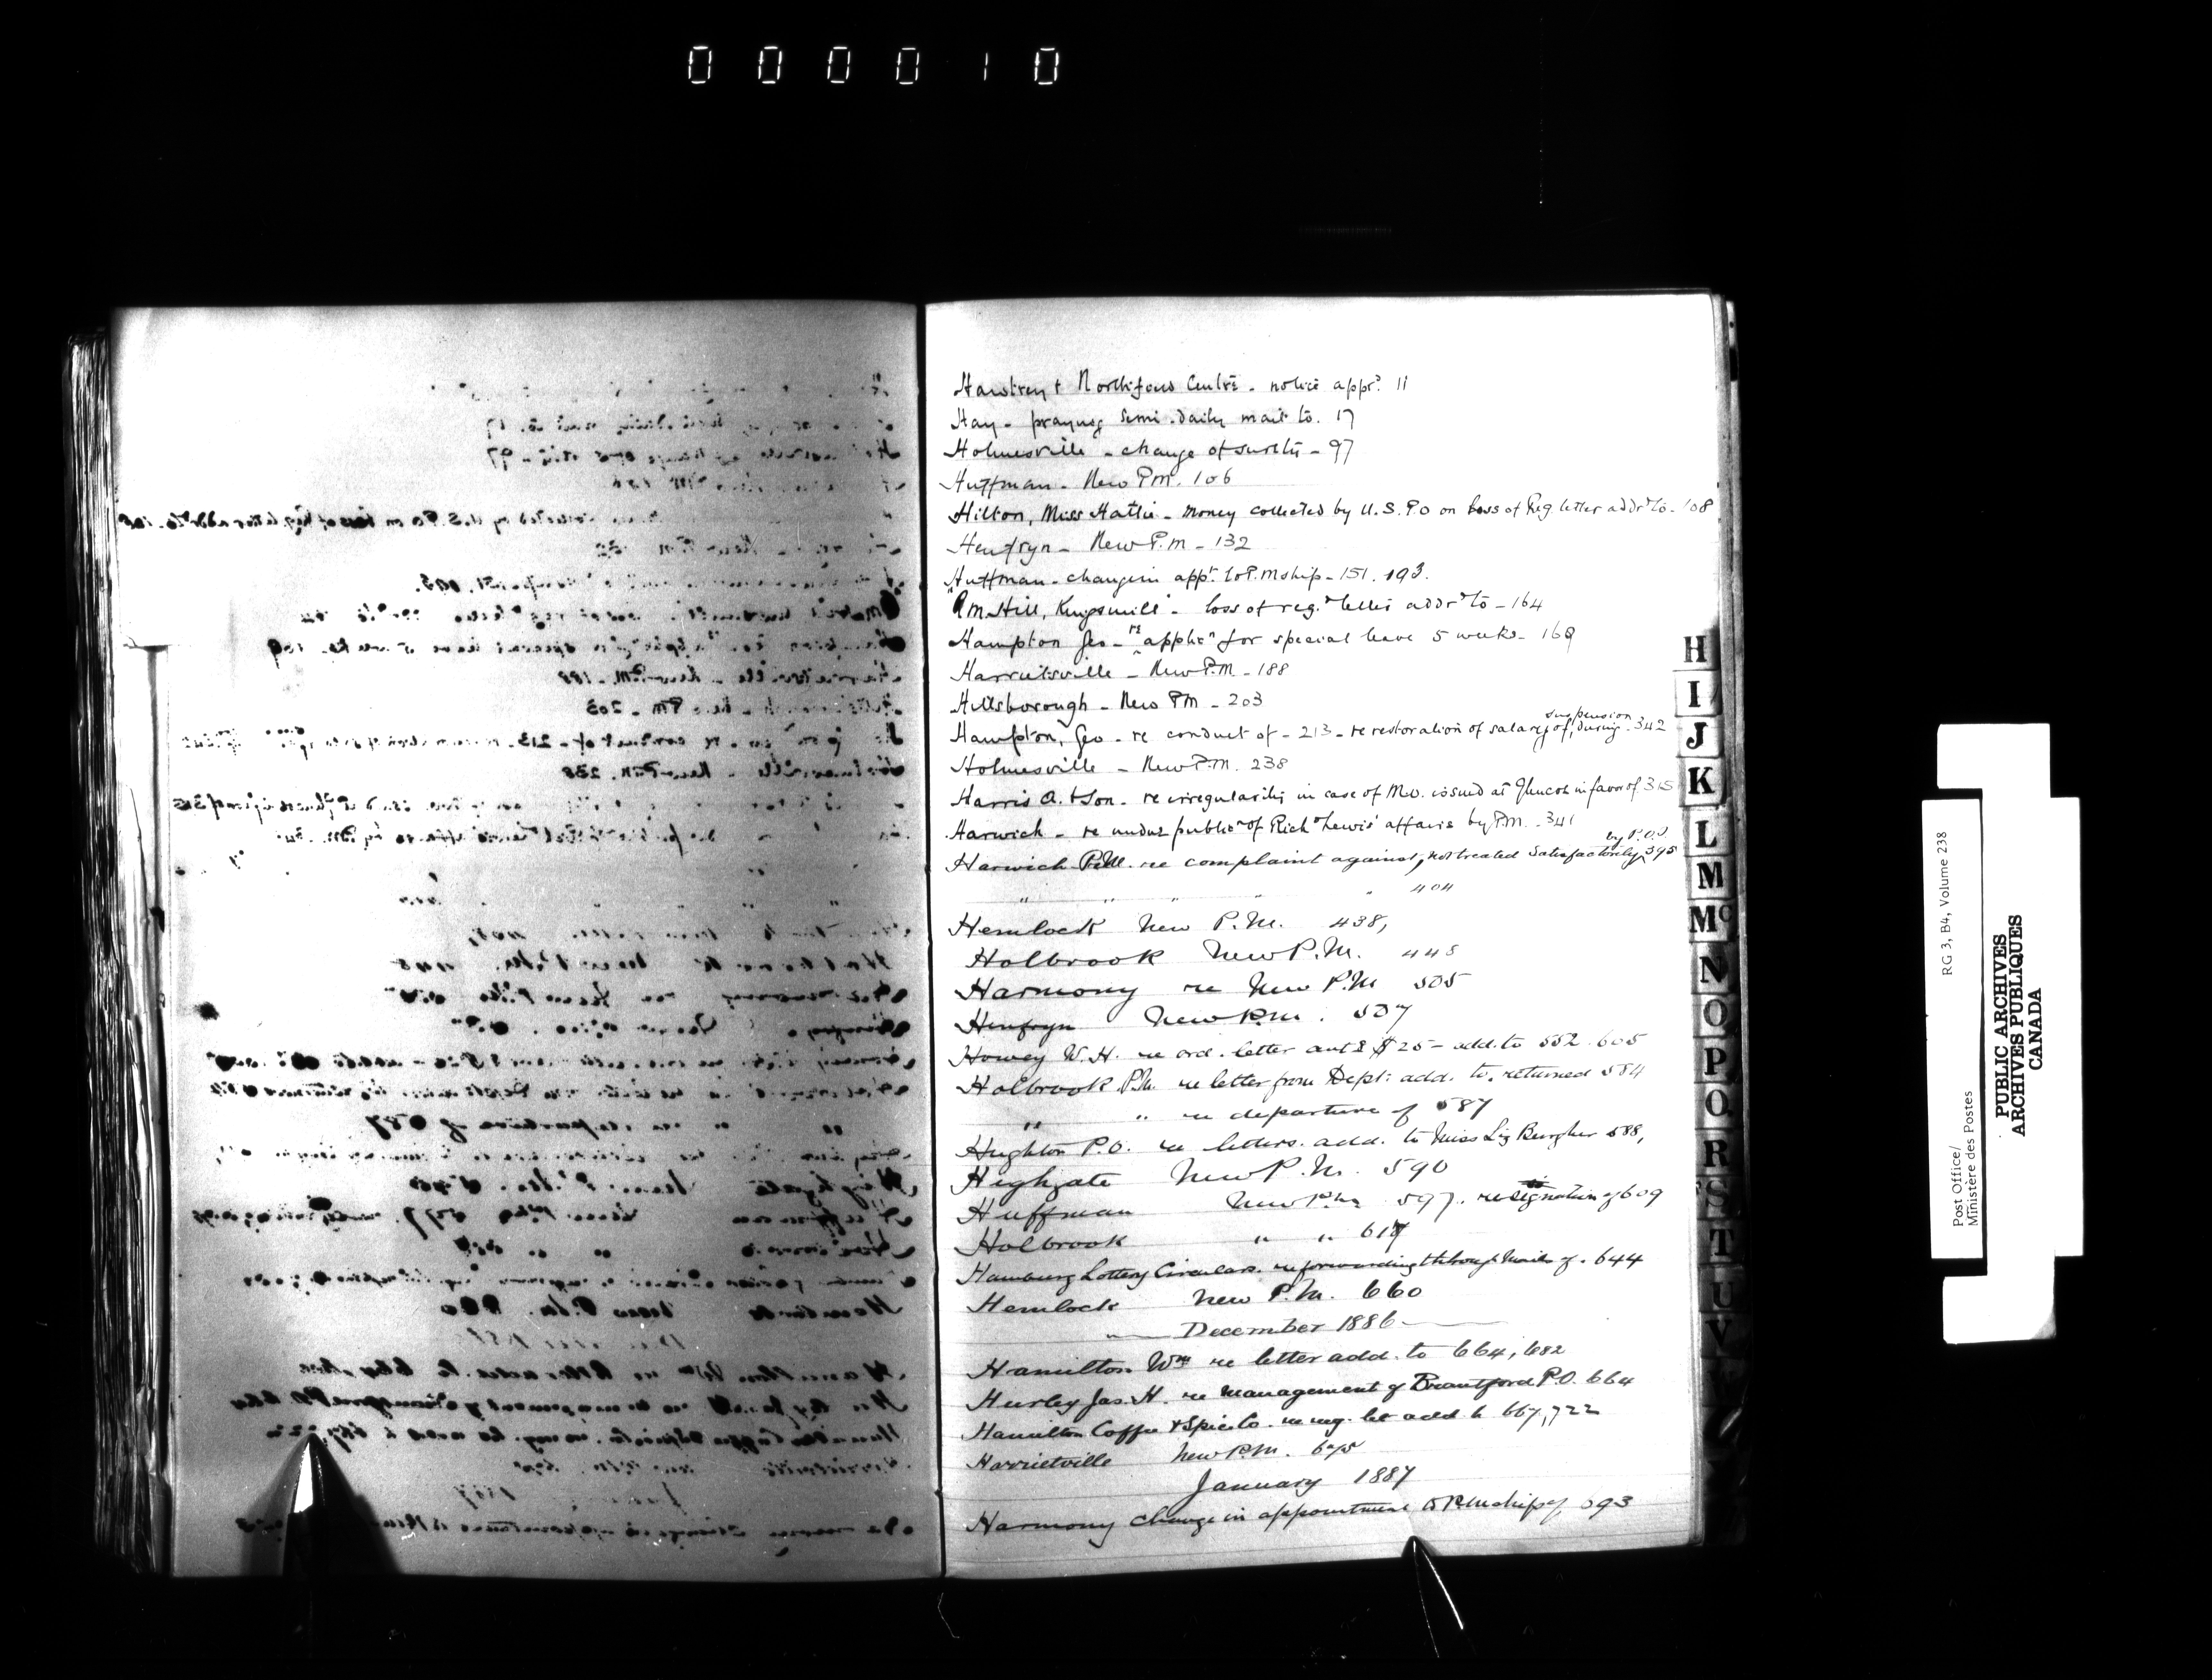 000010
Hawtrey & Northfield Centre - notice appr? 11
Hay - praying semi-daily mail to. 17
Holmesville - change of sureties - 97
Huffman - New P.M. 106
Hilton, Miss Hattie - Money collected by U.S. P.O on loss of Reg. letter addrd to - 108
Henfryn - New P.m - 132
Huffman - change in appt. to P.Mship - 151. 193.
P.m Hill, Kingsmill - loss of reg.d letter addrd to - 164
Hampton Geo - re applicn for special leave 5 weeks - 169
Harrietsville - New P.M - 188
Hillsborough - New PM - 203
Hampton, Geo - re conduct of - 213 - re restoration of salary of, during suspension - 342
Holmesville - New P.M. 238
Harris A. & Son - re irregularities in case of M.O. issued at Glencoe in favor of 315
Harwich - re undue publicn of Richd Lewis' affairs by P.M. - 341
Harwich P.M. re complaint against, not treated satisfactorily by P.O.I 395
" " " " 404
Hemlock New P.M. 438,
Holbrook New P.M. 448
Harmony re New P.M 505
Henfryn New P.M. 507
Howey W. H. re ord. letter contg $25 - add. to 552. 605
Holbrook P.M. re letter from Dept: add. to, returned 584
" " re departure of 587
Highton P.O. re letters. add. to Miss Liz Burgher 588,
Highgate New P.M. 590
Huffman New P.M. 597. resignation of 609
Holbrook " " 617
Hamburg Lottery Circulars. re forwarding through Mails of. 644
Hemlock New P.M. 660
" December 1886
Hamilton Wm re letter add. to 664, 682
Hurley Jas. H. re management of Brantford P.O. 664
Hamilton Coffee & Spice Co. re reg. let add. to 667, 722
Harrietville New P.M. 675
January 1887
Harmony change in appointment to P.M.ship of 693
H
I
J
K
L
M
Mc
N
O
P
Q
R
S
T
U
V
Post Office/
Ministère des Postes
RG 3, B4, Volume 238
PUBLIC ARCHIVES
ARCHIVES PUBLIQUES
CANADA